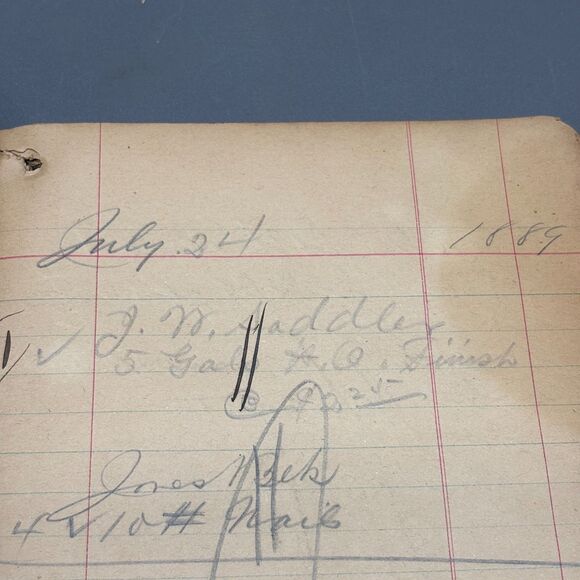 July 24 1889
J. W. Saddler
5 Gal H.O. Finish
@ $2.25
Jones
4 10 # Nails